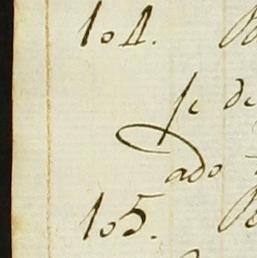 104.
se de
ado
105.